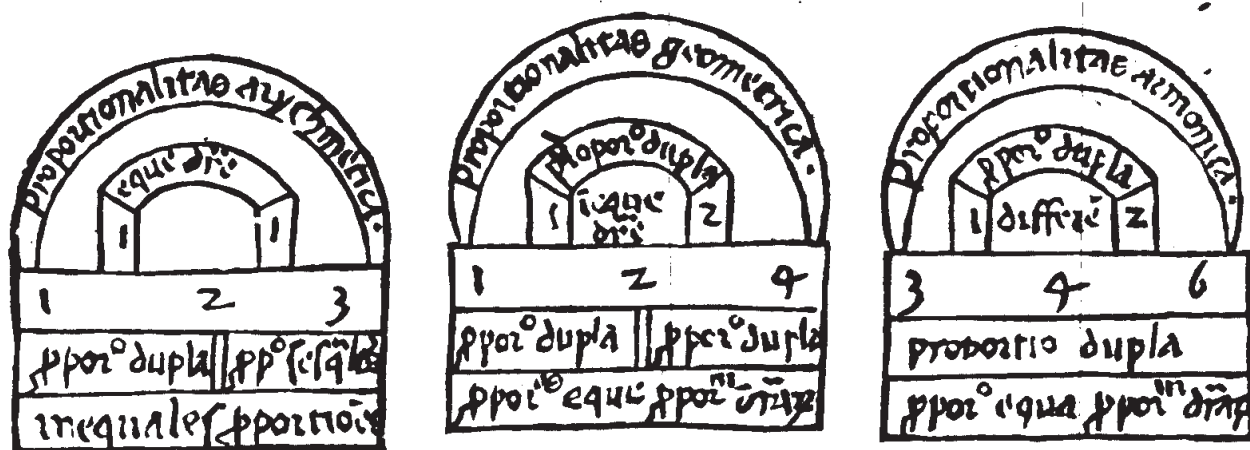 proportionalitas arychmetica.
eque dr̄e
1 1
1 2 3
ꝓporᵒ dupla ꝓpᵒ
inequales ꝓportiões
Proportionalitas geometrica.
propor° dupla
1 ieque 2
dr̄e
1 2 4
ꝓporᵒ dupla ꝓporᵒ dupla
eque
Proportionalitas armonica.
ꝓporᵒ dupla
1 differē 2
3 4 6
proportio dupla
ꝓporᵒ equa